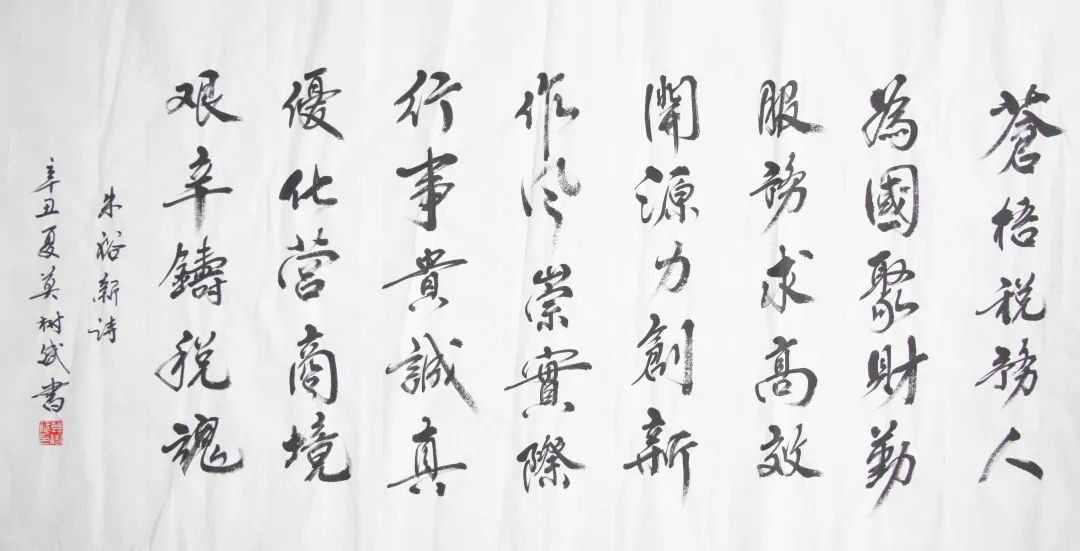 蒼梧税務人
為國聚財勤
服務求高效
開源力創新
作風崇實際
行事貴誠真
優化营商境
艰辛鑄税魂
朱裕新詩
辛丑夏莫树斌書